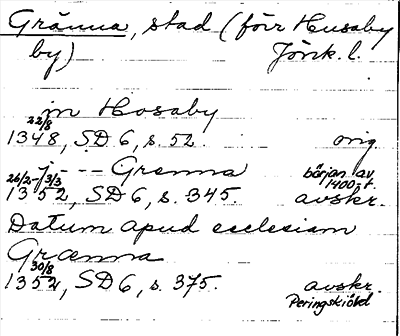 Gränna, stad (förr Husaby
by) Jönk. l.
in Hosaby
22/8
1348, SD 6, s. 52. orig.
-"- -- Grenna början av
26/2-3/3 1400-t.
1352, SD 6, s. 345. avskr.
Datum apud ecclesiam
Grænna
30/8
1352, SD 6, s. 375. avskr.
Peringskiöld